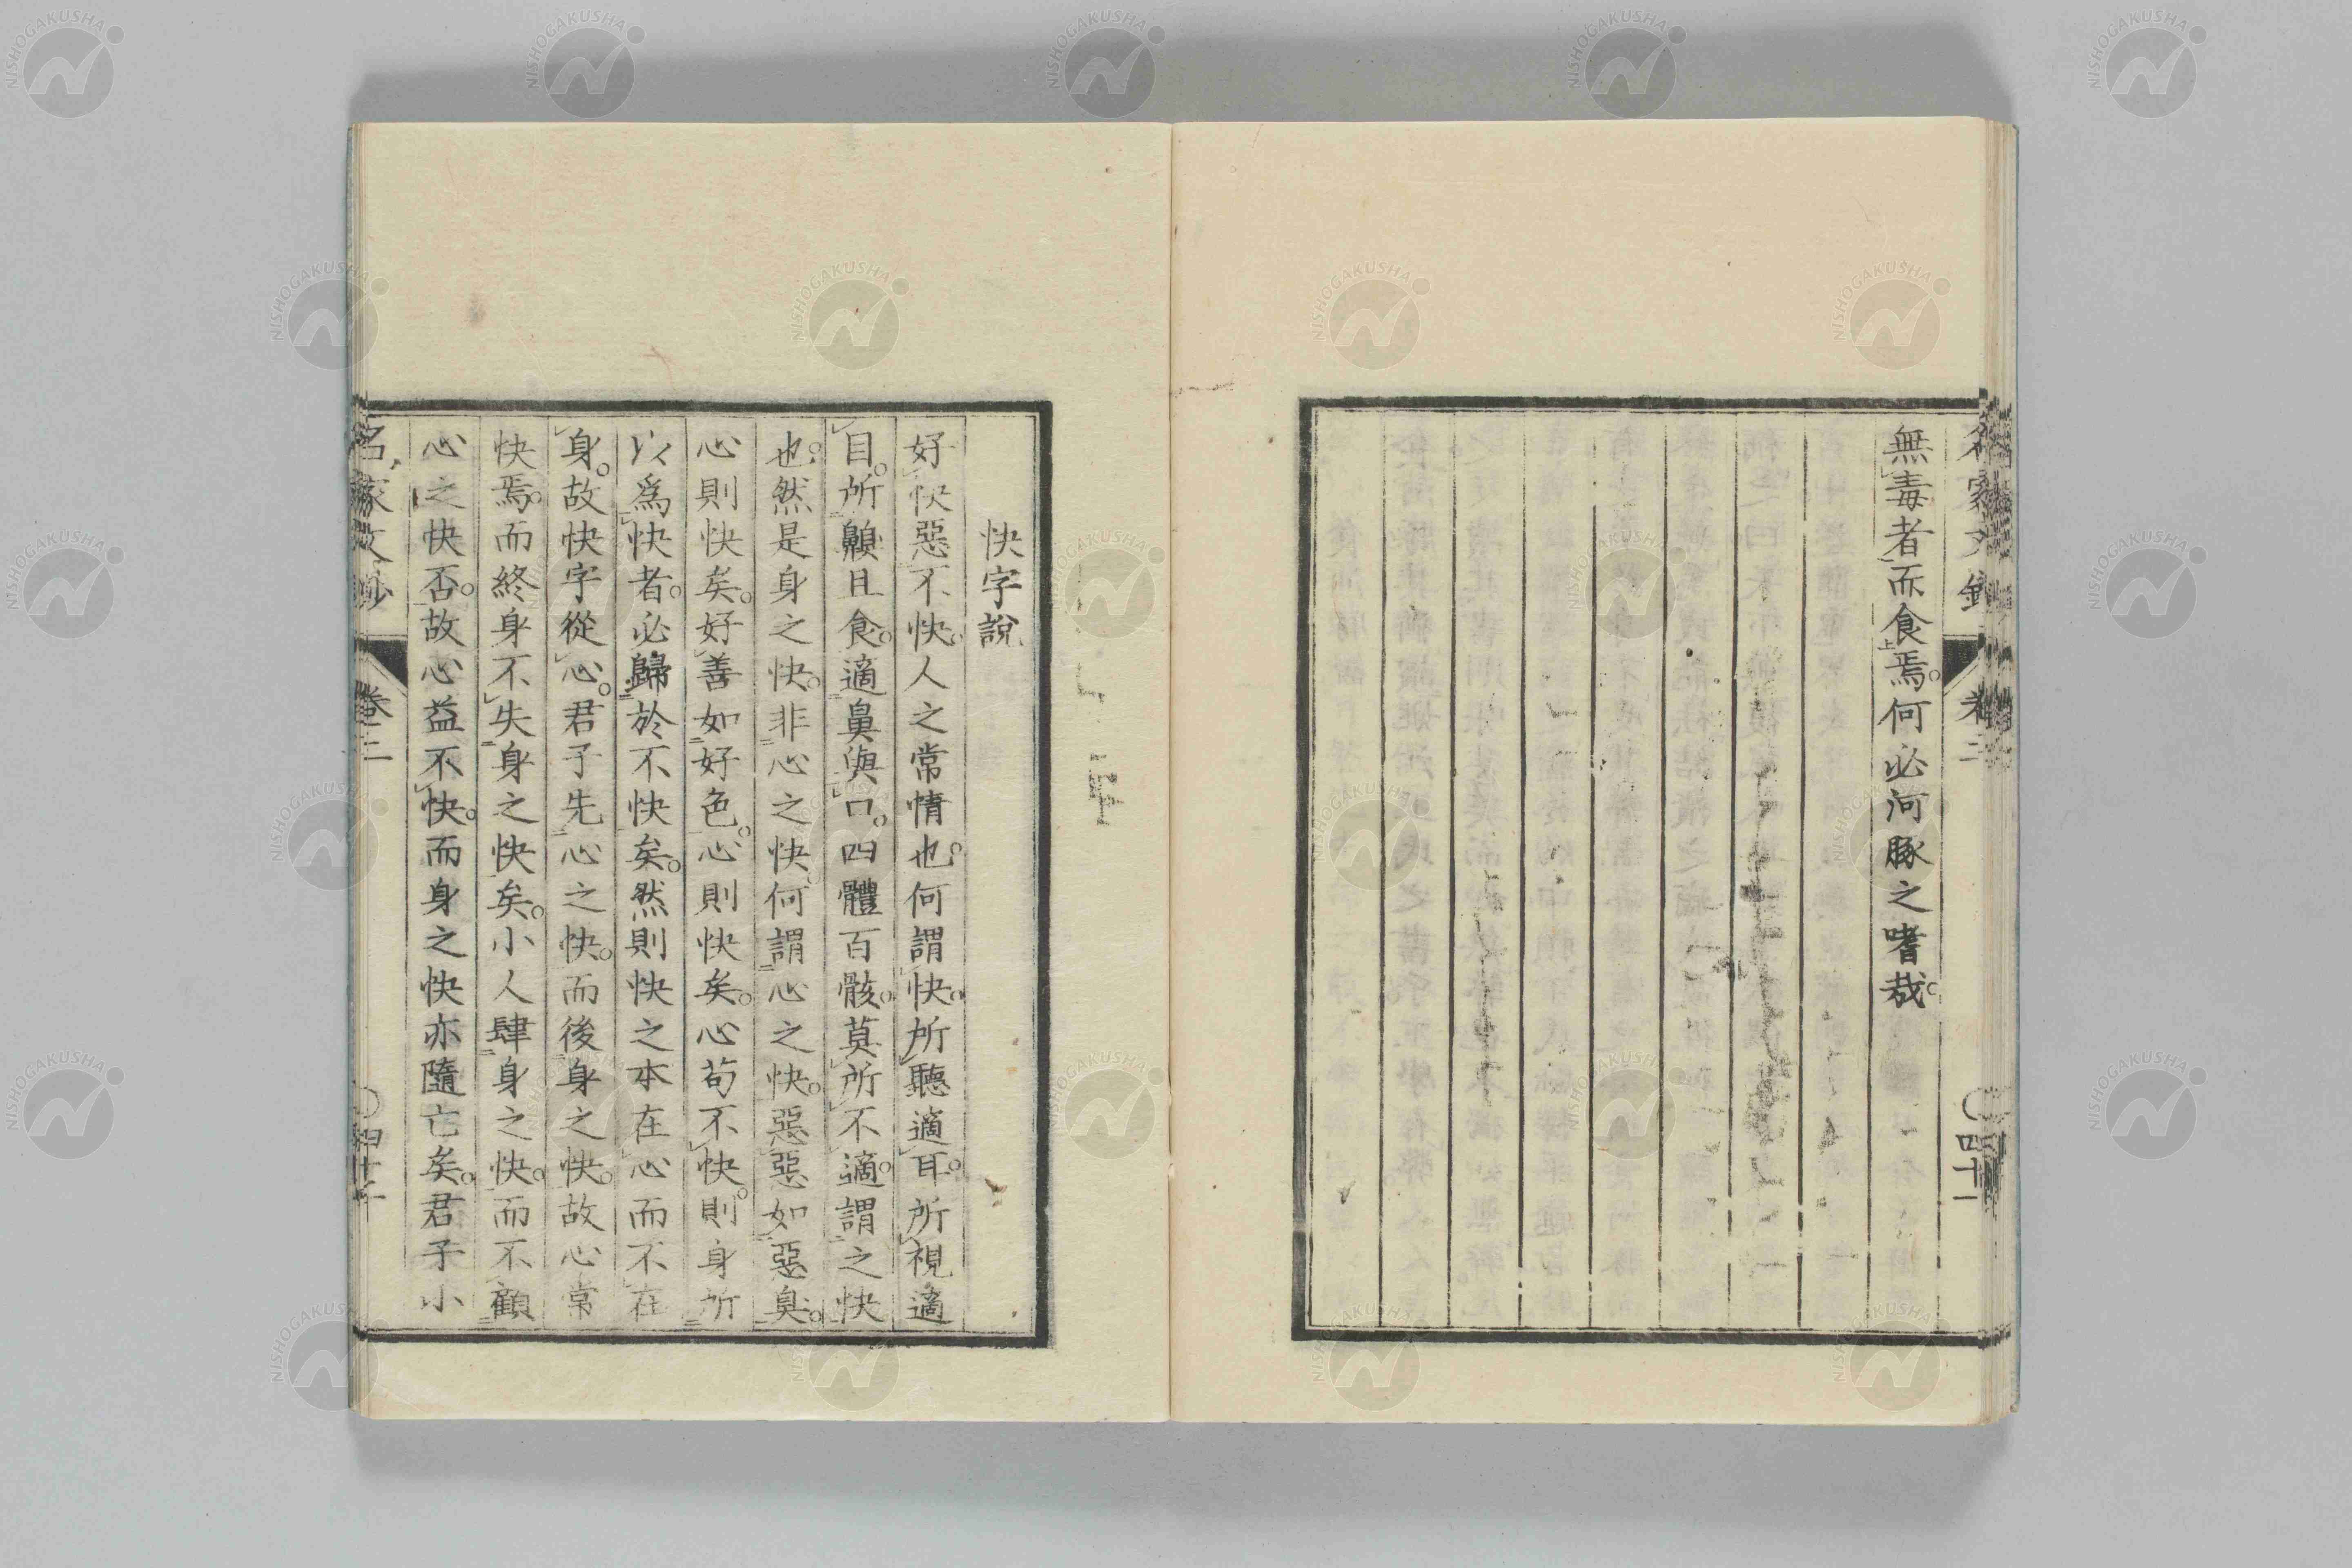 名家文鈔 卷二 〇四十一
無毒者而食焉。何必河豚之嗜哉。
快字說
好快惡不快。人之常情也。何謂快。所聽適耳。所視適
目。所齅且食。適鼻與口。四體百骸。莫所不適。謂之快
也。然是身之快。非心之快。何謂心之快。惡惡如惡臭。
心則快矣。好善如好色。心則快矣。心苟不快。則身所
以爲快者。必歸於不快矣。然則快之本在心而不在
身。故快字從心。君子先心之快。而後身之快。故心常
快焉。而終身不失身之快矣。小人肆身之快。而不顧
心之快否。故心益不快。而身之快亦隨亡矣。君子小
名家文鈔 卷二
NISHOGAKUSHA